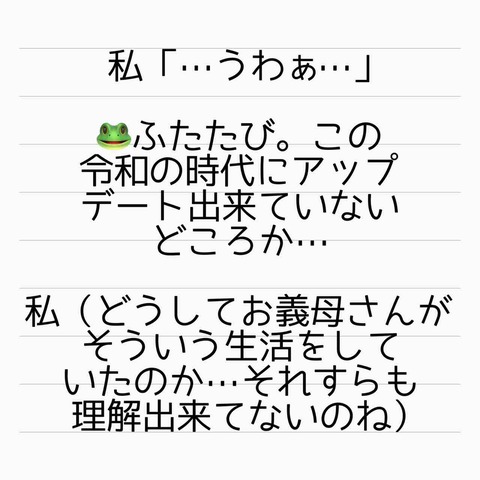 私「…うわぁ…」
🐸ふたたび。この
令和の時代にアップ
デート出来ていない
どころか…
私（どうしてお義母さんが
そういう生活をして
いたのか…それすらも
理解出来てないのね）